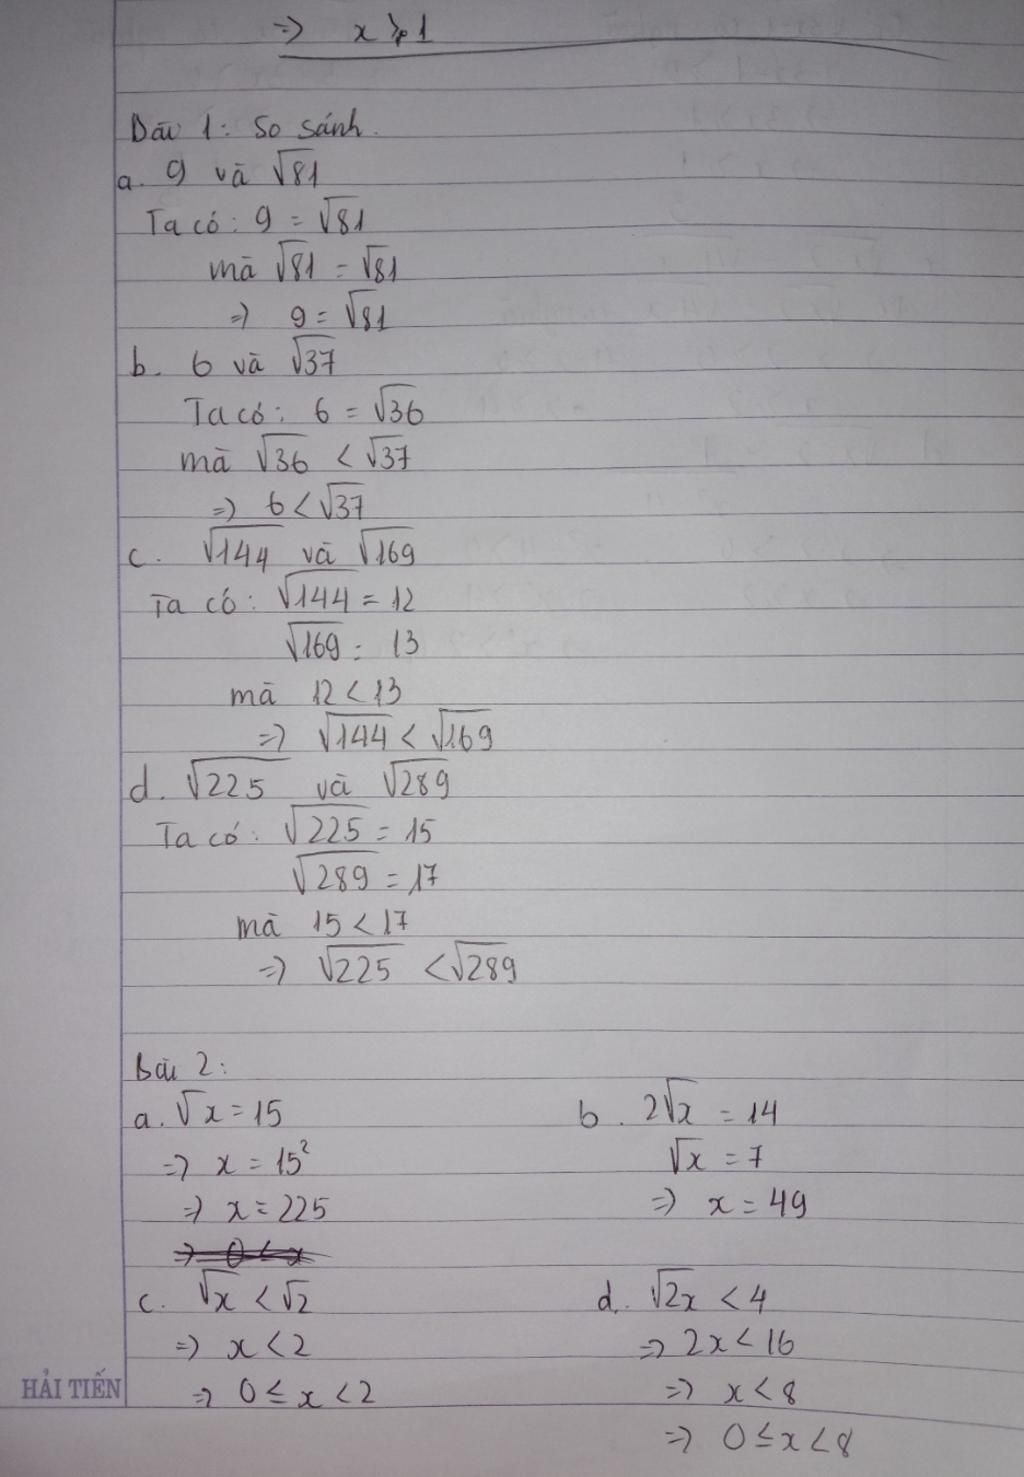 => x ≥ 1
Bài 1: So sánh.
a. 9 và √81
Ta có: 9 = √81
mà √81 = √81
=> 9 = √81
b. 6 và √37
Ta có: 6 = √36
mà √36 < √37
=> 6 < √37
c. √144 và √169
Ta có: √144 = 12
√169 = 13
mà 12 < 13
=> √144 < √169
d. √225 và √289
Ta có: √225 = 15
√289 = 17
mà 15 < 17
=> √225 < √289
Bài 2:
a. √x = 15
=> x = 15²
=> x = 225
=> 0 ≤ x
b. 2√x = 14
√x = 7
=> x = 49
c. √x < √2
=> x < 2
=> 0 ≤ x < 2
d. √2x < 4
=> 2x < 16
=> x < 8
=> 0 ≤ x < 8
HẢI TIẾN